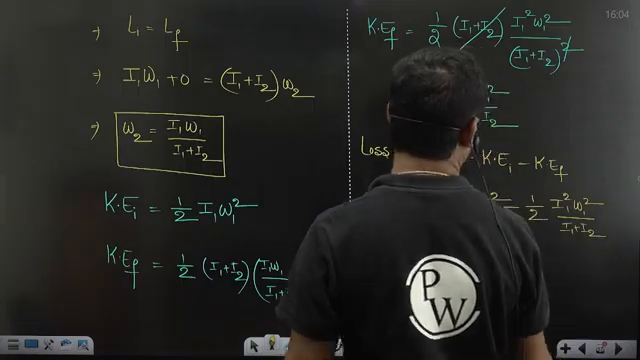 ⇒ L₁ = L_f
⇒ I₁ω₁ + 0 = (I₁+I₂)ω₂
⇒ ω₂ = I₁ω₁ / I₁+I₂
K·E_i = 1/2 I₁ω₁²
K·E_f = 1/2 (I₁+I₂) (I₁ω₁ / I₁+
16:04
K·E_f = 1/2 (I₁+I₂) I₁²ω₁² / (I₁+I₂)²
Loss K·E_i − K·E_f
− 1/2 I₁²ω₁² / I₁+I₂
PW